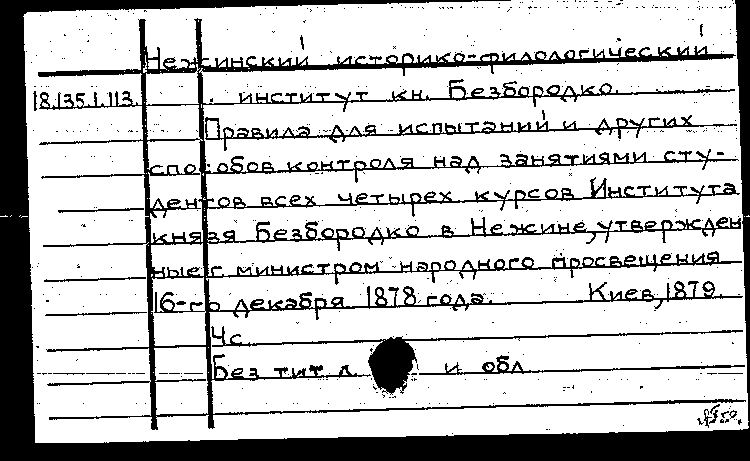 Нежинский историко-филологический
18.135.1.113. институт кн. Безбородко.
Правила для испытаний и других
способов контроля над занятиями сту-
дентов всех четырех курсов Института
князя Безбородко в Нежине, утвержден
ные г. министром народного просвещения
16-го декабря 1878 года. Киев, 1879.
4с.
Без тит л. и обл